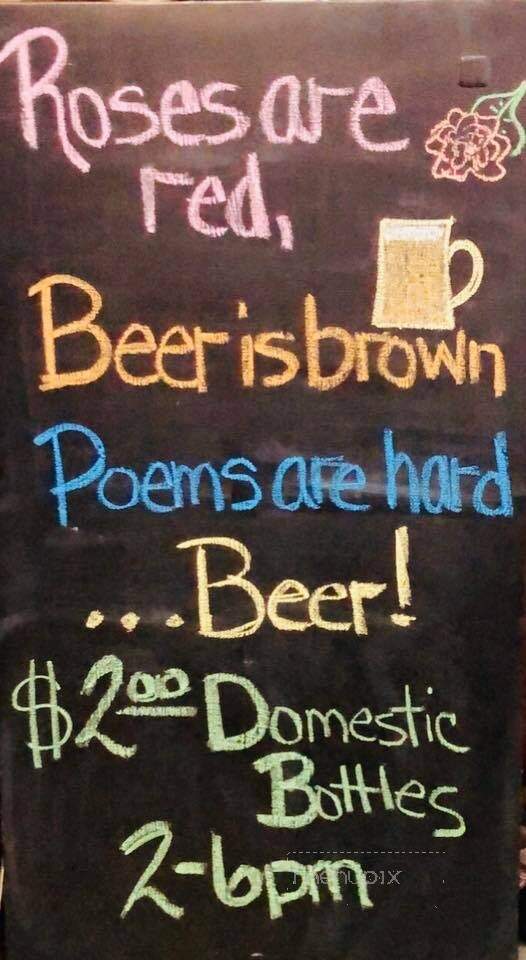 Roses are
red,
Beer is brown
Poems are hard
...Beer!
$2.00 Domestic
Bottles
2-6pm
menupix